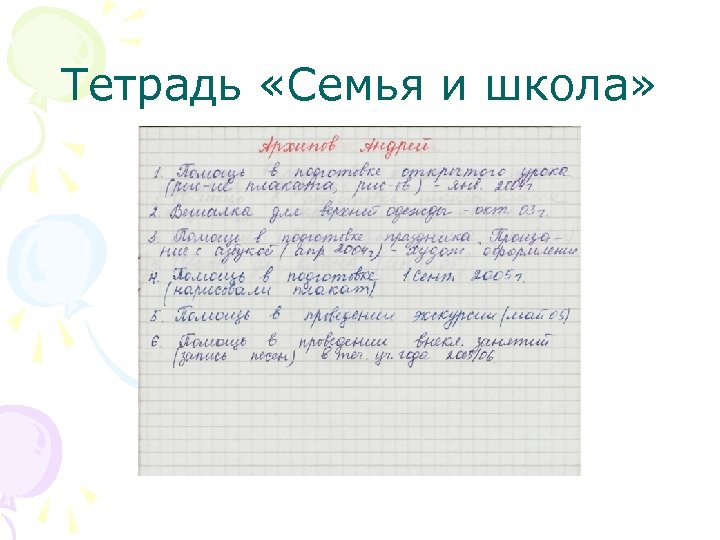 Тетрадь «Семья и школа»
Архипов Андрей
1. Помощь в подготовке открытого урока
(рис-ие плаката, рис-ов) - янв. 2004г
2. Вешалка для верхней одежды - окт. 03г.
3. Помощь в подготовке праздника "Проща-
ние с азбукой" (апр 2004г) - худож. оформление
4. Помощь в подготовке 1 Сент. 2005г.
(нарисовали плакат)
5. Помощь в проведении экскурсии (май 05)
6 Помощь в проведении внекл. занятий
(запись песен) в теч. уч. года 2005/06